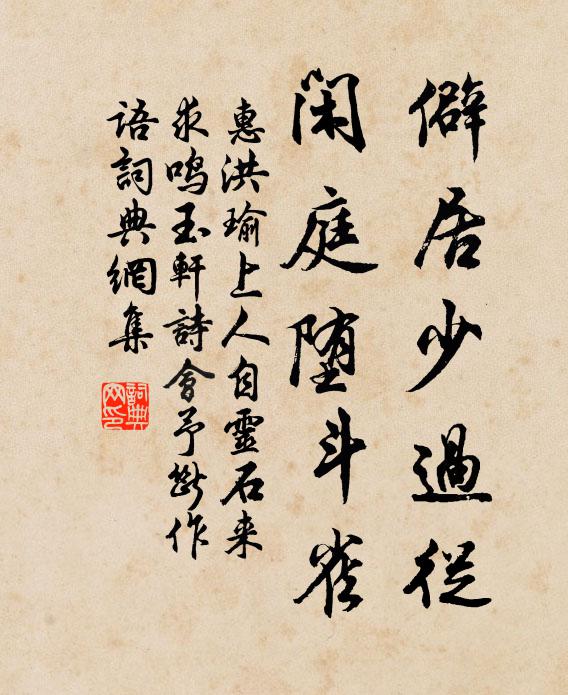 僻居少過從
閑庭墮斗雀
惠洪瑜上人自靈石来
求鳴玉軒詩會予斷作
語詞典網集
詞典
网印